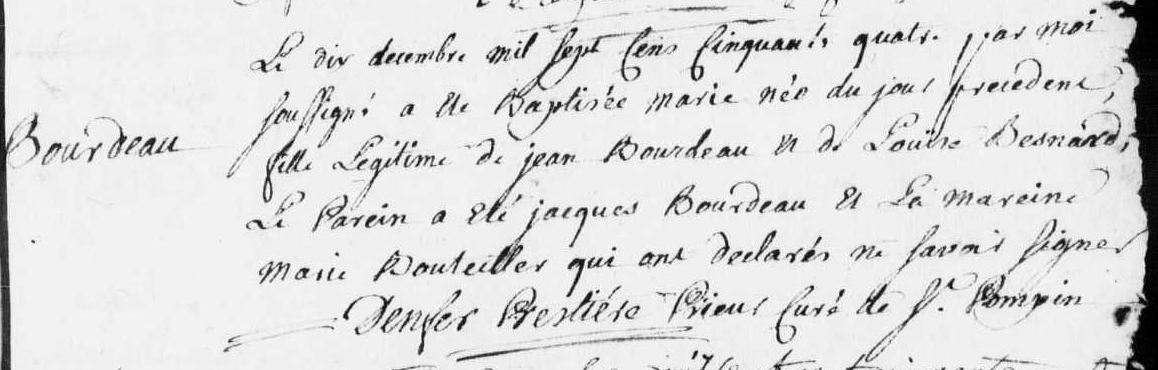 Bourdeau
Le dix decembre mil sept Cens Cinquante quatre par moi
soussigné a ete Baptisée marie née du jour precedent,
fille Legitime de jean Bourdeau et de Louise Besnard,
Le Parein a eté jacques Bourdeau et La mareine
marie Bouteiller qui ont declarés ne savoir signer
Denfer Prieur Curé de St. Pompin